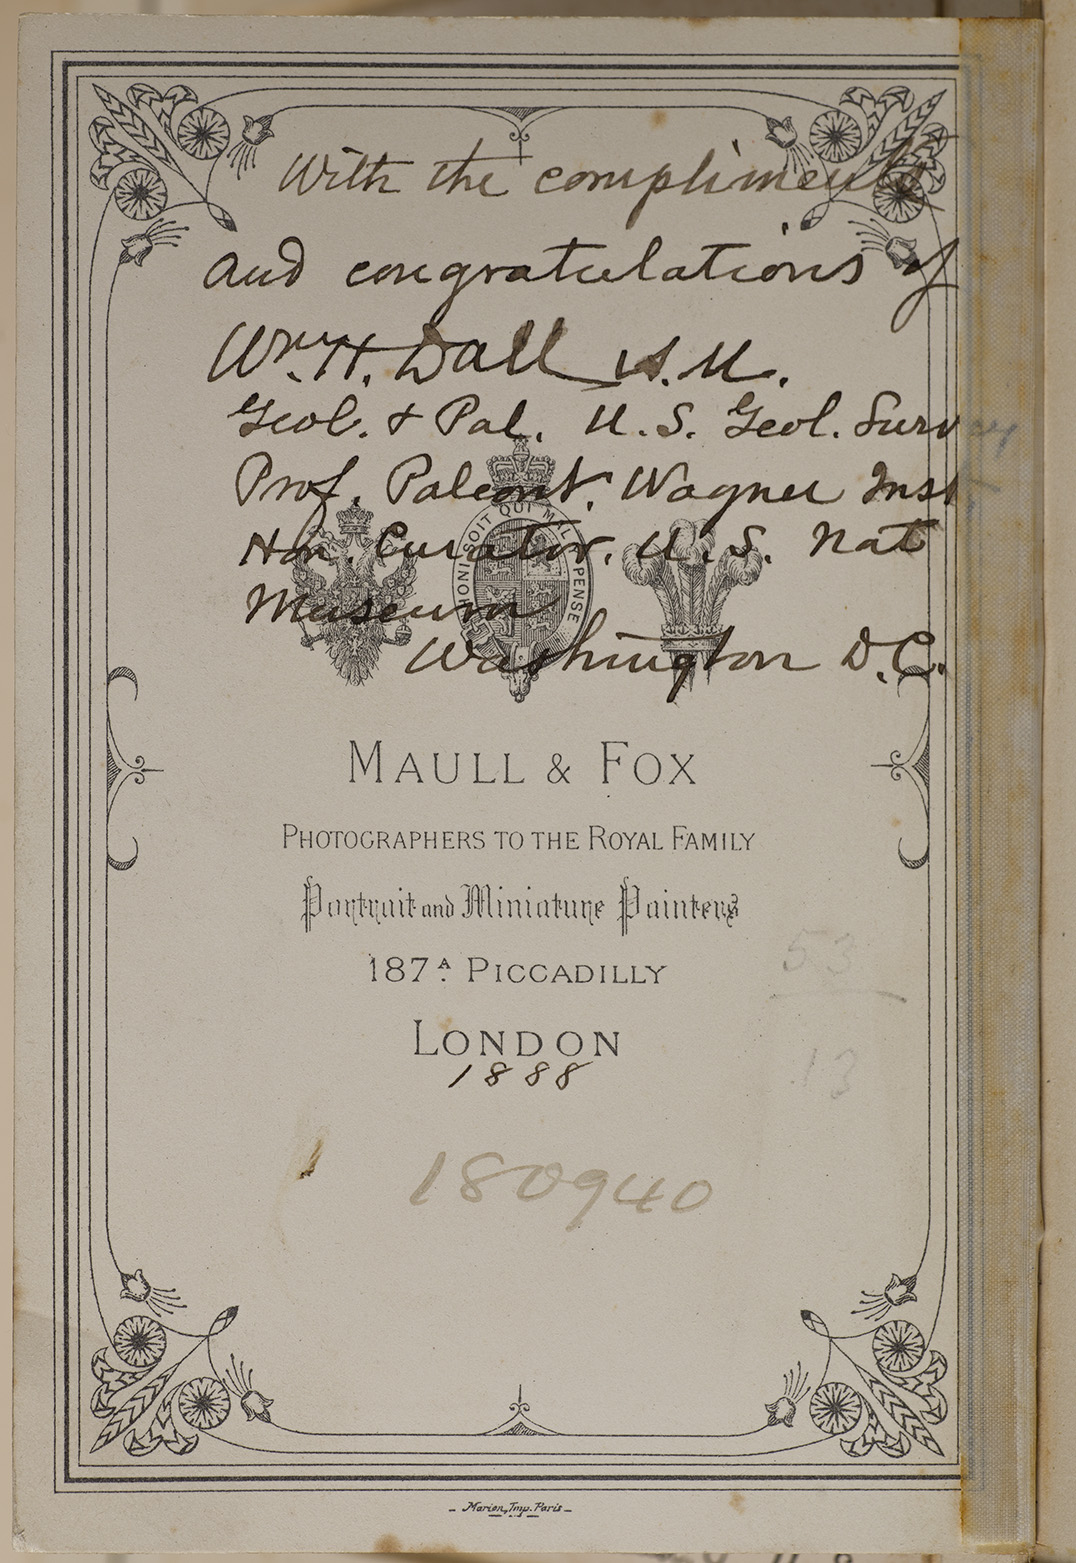 With the compliments
and congratulations of
Wm. H. Dall A.M.
Geol. & Pal. U.S. Geol. Survey
Prof. Paleont. Wagner Inst
Hon. Curator. U.S. Nat
Museum
Washington D.C.
HONI SOIT QUI MAL Y PENSE
MAULL & FOX
PHOTOGRAPHERS TO THE ROYAL FAMILY
Portrait and Miniature Painters
187A. PICCADILLY
LONDON
1888
53
13
180940
Marion, Imp. Paris